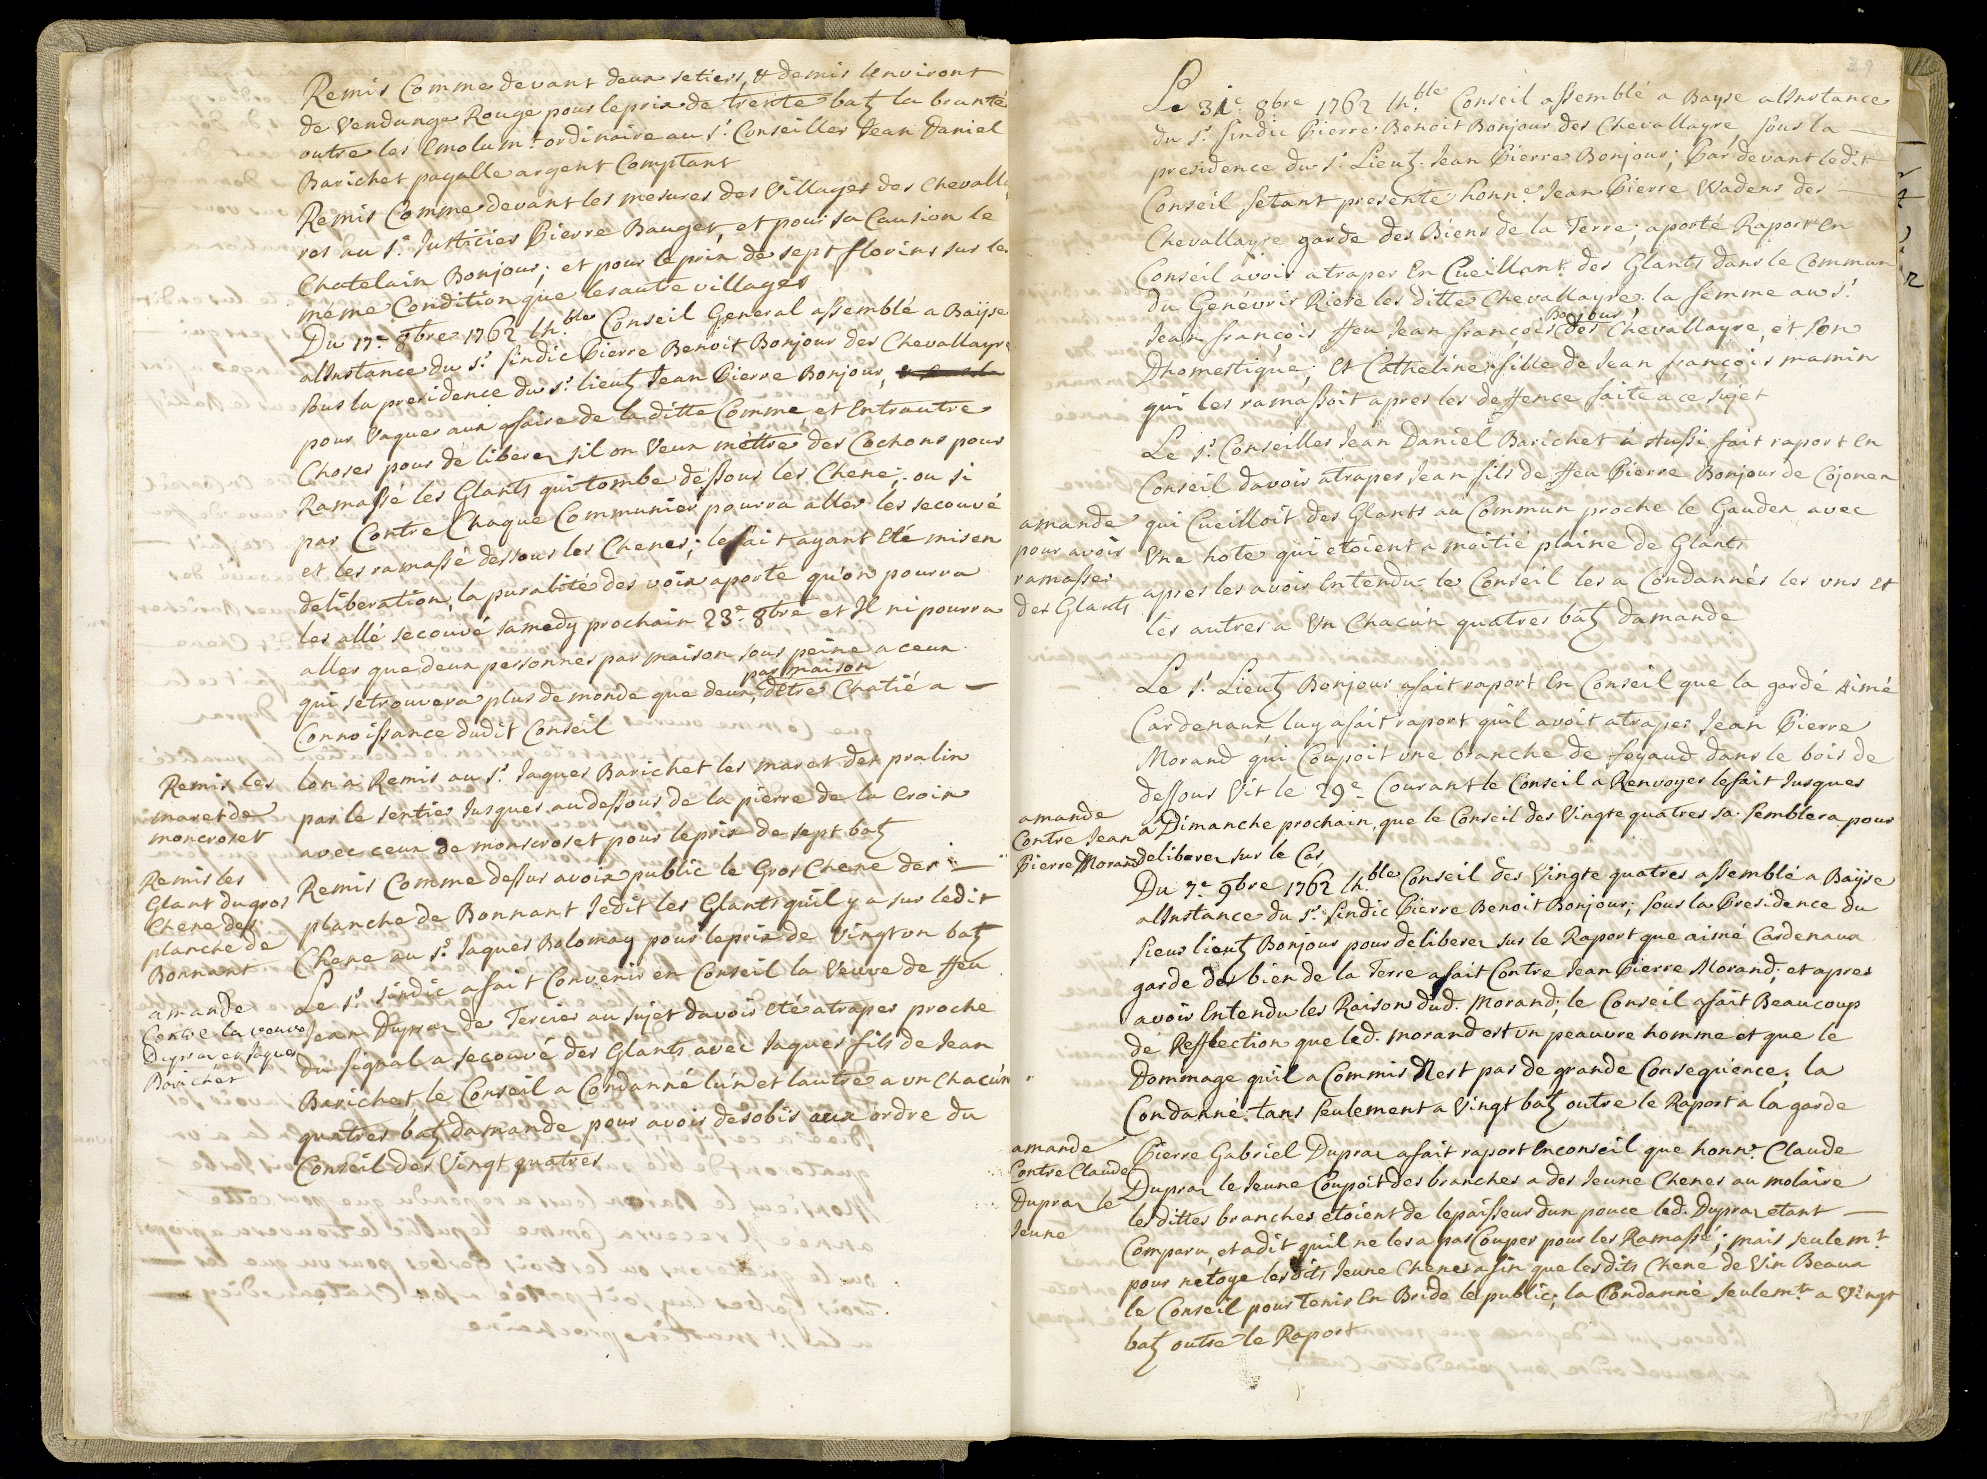 Remis Comme devant deux setiers, & demis lenviront
de Vendange Rouge pour le prix de trente batz la brantè
outre les Emolum.t ordinaire au s.r Conseiller Jean Daniel
Barichet payalle argent Comptant
Remis Comme devant les mesures des Villages des Chevalla
res au s.r Justicier Pierre Bauget, et pour sa Causion le
Chatelain Bonjour; et pour le prix de sept florins sur les
même Condition que les autre villages
Du 17.e 8bre 1762 lh.ble Conseil General assemblé a Baÿse
alInstance du s.r sindic Pierre Benoit Bonjour des Chevallayre
sous la presidence du s.r lieutz Jean Pierre Bonjour,
pour Vaquer aux afaire de la ditte Comme, et Entrautre
Choses pour de liberer sil on Veux mèttre des Cochons pour
Ramassé les Glants qui tombe dessous les Chene; ou si
par Contre Chaque Communier pourra aller les secouvé
et les ramassé dessous les Chenes; le fait ayant Eté mis en
deliberation, la puralité des voix aporte qu'on pourra
les allé secouvé samedy prochain 23.e 8bre et Il ni pourra
aller que deux personnes par maison sous peine a ceux
par maison
qui se trouvera plus de monde que deux, dêtre Chatié a
Connoissance dudit Conseil
Remis les
maret de
moncroset
lon a Remis au s.r Jaques Barichet les maret des pralin
par le sentier Jusques au dessous de la pierre de la Croix
avec ceux de monscroset pour le prix de sept batz
Remis les
Glant du gros
Chene des
planche de
Bonnant
Remis Comme dessus avoix public le Gros Chene des
planche de Bonnant Jedit les Glants quil y a sur ledit
Chene au s.r Jaques Balomay pour le prix de Vingt un batz
amande
Contre la veuve
Dupraz et Jaques
Barichet
Le s.r sindic a fait Convenir en Conseil la Veuve de ffeu
Jean Dupraz de Tercier au sujet davoir Eté atraper proche
du signal a secouvé des Glants avec Jaques fils de Jean
Barichet, le Conseil a Condanné lun et lautre a un Chacun
quatres batz damande pour avoir desobis aux ordre du
Conseil des Vingt quatres
29
Le 31.e 8bre 1762 lh.ble Conseil assemblé a Bayse alInstance
du s.r sindic Pierre Benoit Bonjour des Chevallayre, sous la
presidence du s.r Lieutz. Jean Pierre Bonjour; Par devant ledit
Conseil setant presenté honn.e Jean Pierre Wadens des
Chevallayre garde des Biens de la Terre; aporté Raport En
Conseil avoir atraper En Cueillant des Glants dans le Commun
du Genévris Riere les ditte Chevallayre la femme au s.r
Bonjour
Jean françois ffeu Jean françois des Chevallayre, et son
Dhomestique; Et Catheline fille de Jean françois mamin
qui les ramassoit apres les deffence faite a ce sujet
Le s.r Conseiller Jean Daniel Barichet à Aussi fait raport En
Conseil davoir atraper Jean fils de ffeu Pierre Bonjour de Cojonex
amande
pour avoir
ramasser
des Glants
qui Cueilloit des Glants au Commun proche le Gauden avec
Une hote qui etoient a moitié plaine de Glants
apres les avoir Entendu le Conseil les a Condannés les uns et
les autres a Un Chacun quatres batz damande
Le s.r Lieutz Bonjour afait raport En Conseil que la gardé Aimé
Cardenaux, luy afait raport quil avoit atraper Jean Pierre
Morand qui Coupoit une branche de foyaud dans le bois de
dessous Vit le 29.e Courant le Conseil a Renvoyer le fait Jusques
amande
Contre Jean
Pierre Morand
a Dimanche prochain, que le Conseil des Vingte quatres sa-semblera pour
deliberer sur le Cas
Du 7.e 9bre 1762 lh.ble Conseil des Vingte quatres assemblé a Baÿse
alInstance du s.r Sindic Pierre Benoit Bonjour; sous la Presidence du
sieur lieutz Bonjour pour deliberer sur le Raport que aimé Cardenaux
garde des bien de la Terre afait Contre Jean Pierre Morand; et apres
avoir Entendu les Raisons dud. Morand; le Conseil afait Beaucoup
de Reffection que led. morand est un peauvre homme et que le
Dommage quil a Commis Nest pas de grande Conseqúence; la
Condanné tans seulement a Vingt batz outre le Raport a la garde
amande
Contre Claude
Dupraz le
Jeune
Pierre Gabriel Dupraz afait raport Enconseil que honn.e Claude
Dupraz le Jeune Coupoit des branches a des Jeune Chenes au molaire
lesdittes branches etoient de lepaisseur dun pouce led. Dupraz etant
Comparu, et adit quil ne les a pas Couper pour les Ramassé; mais seulem.t
pour netoye lesdits Jeune Chenes afin que lesdits Chene de Vin Beaux
le Conseil pour Tenir En Bride le public; la Condanné seulem.t a Vingt
batz outre le Raport